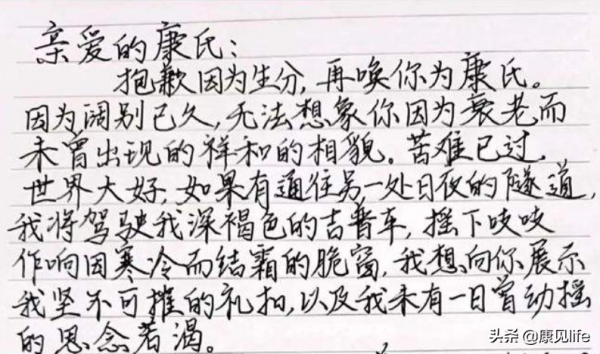 亲爱的康氏：
抱歉因为生分，再唤你为康氏。
因为阔别已久，无法想象你因为衰老而
未曾出现的祥和的相貌。苦难已过，
世界大好，如果有通往另一处日夜的隧道，
我将驾驶我深褐色的吉普车，摇下吱吱
作响因寒冷而结霜的脆窗，我想向你展示
我坚不可摧的礼扣，以及我未有一日曾动摇
的思念若渴。
头条 @康见life